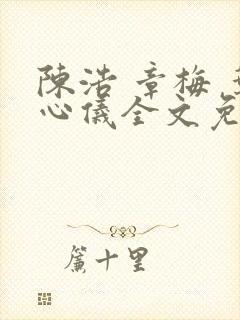 陳浩 章梅
心儀全文免
簾十里